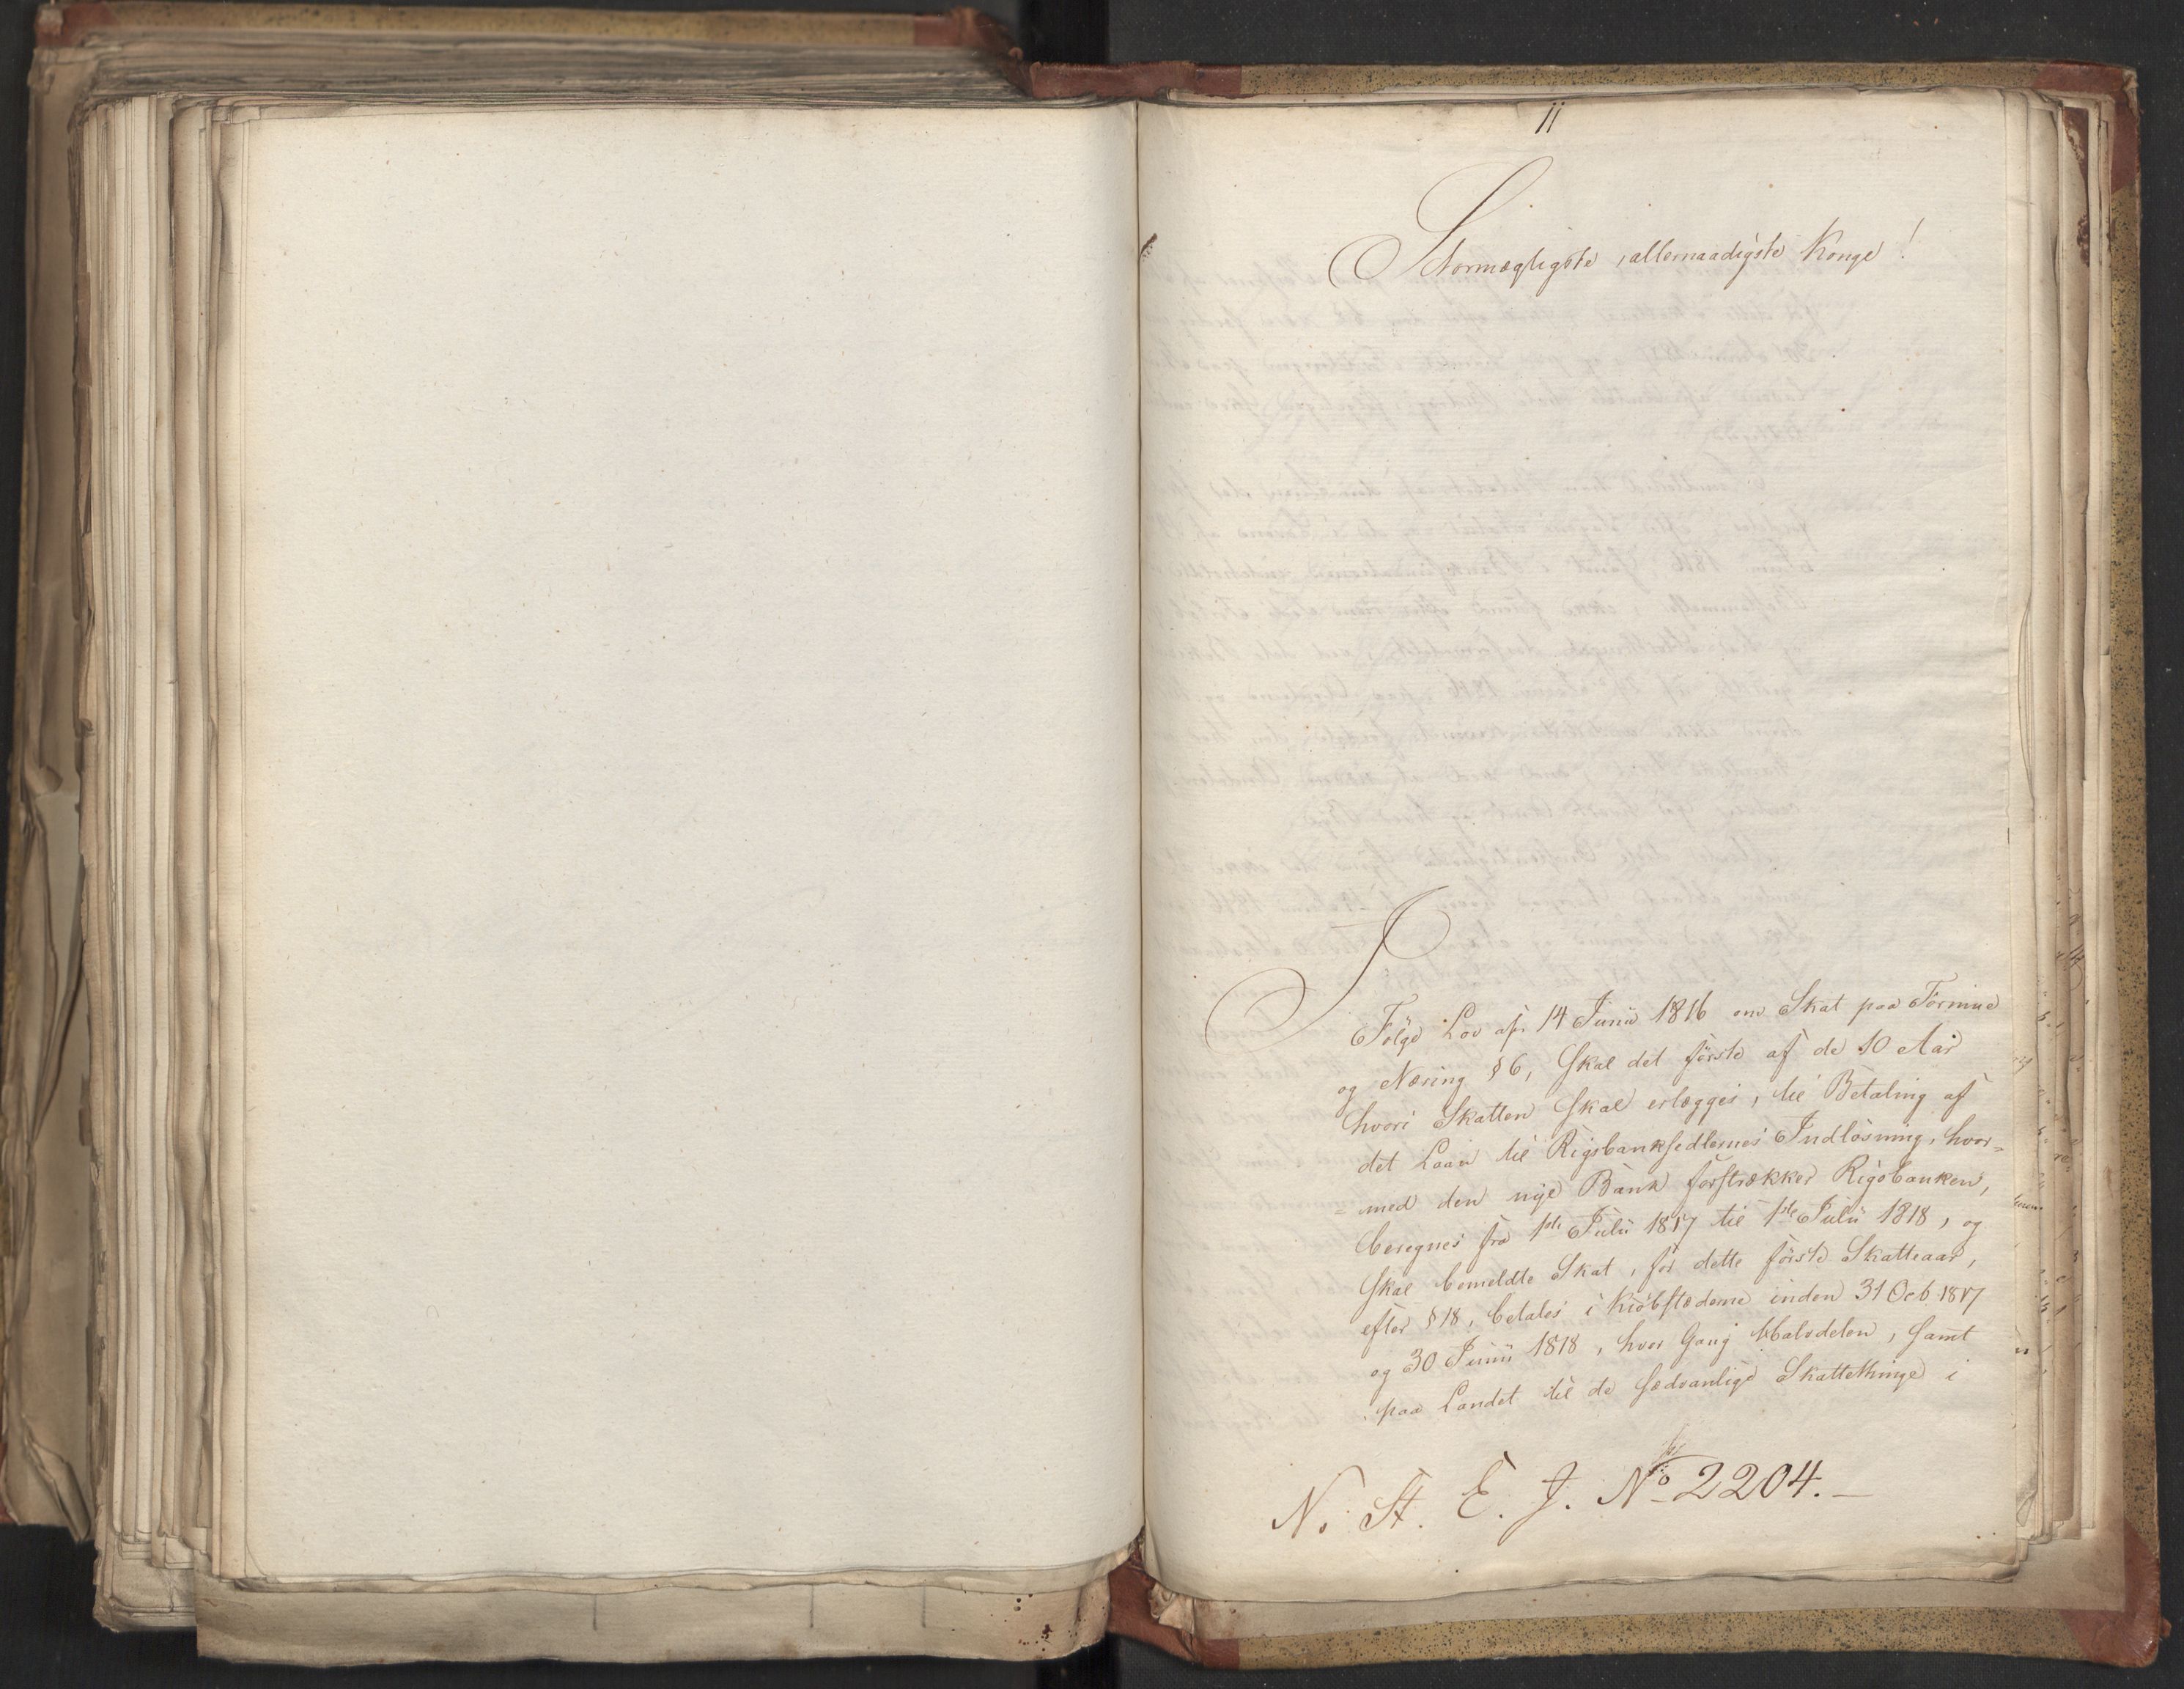 11
Stormægtigste, allernaadigste Konge!
I
Følge Lov af 14 Junii 1816 om Skat paa Formue
og Næring § 6, skal det første af de 10 Aar
hvori Skatten skal erlægges, til Betaling af
det Laan til Rigsbanksedlernes Indløsning, hvor=
=med den nye Bank forstrækker Rigsbanken,
beregnes fra 1ste Julii 1817 til 1ste Julii 1818, og
skal bemeldte Skat, for dette første Skatteaar,
efter § 18, betales i Kiøbstæderne inden 31 Octb. 1817
og 30 Junii 1818, hver Gang Halvdelen, samt
paa Landet til de sædvanlige Skattethinge i
N. St. E. J. No 2204.—